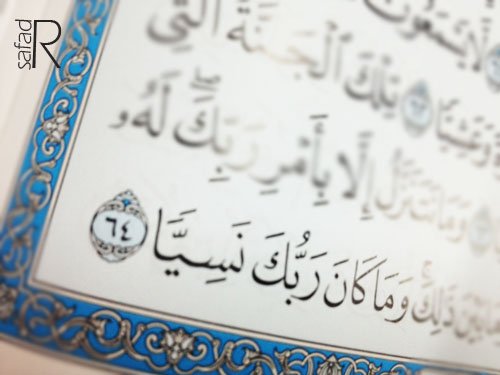 safad
R
لَا يَسْمَعُونَ
وَعَشِيًّا ٦٢ تِلْكَ ٱلْجَنَّةُ ٱلَّتِي
وَمَا نَتَنَزَّلُ إِلَّا بِأَمْرِ رَبِّكَ ۖ لَهُۥ
بَيْنَ ذَٰلِكَ ۚ وَمَا كَانَ رَبُّكَ نَسِيًّا ٦٤